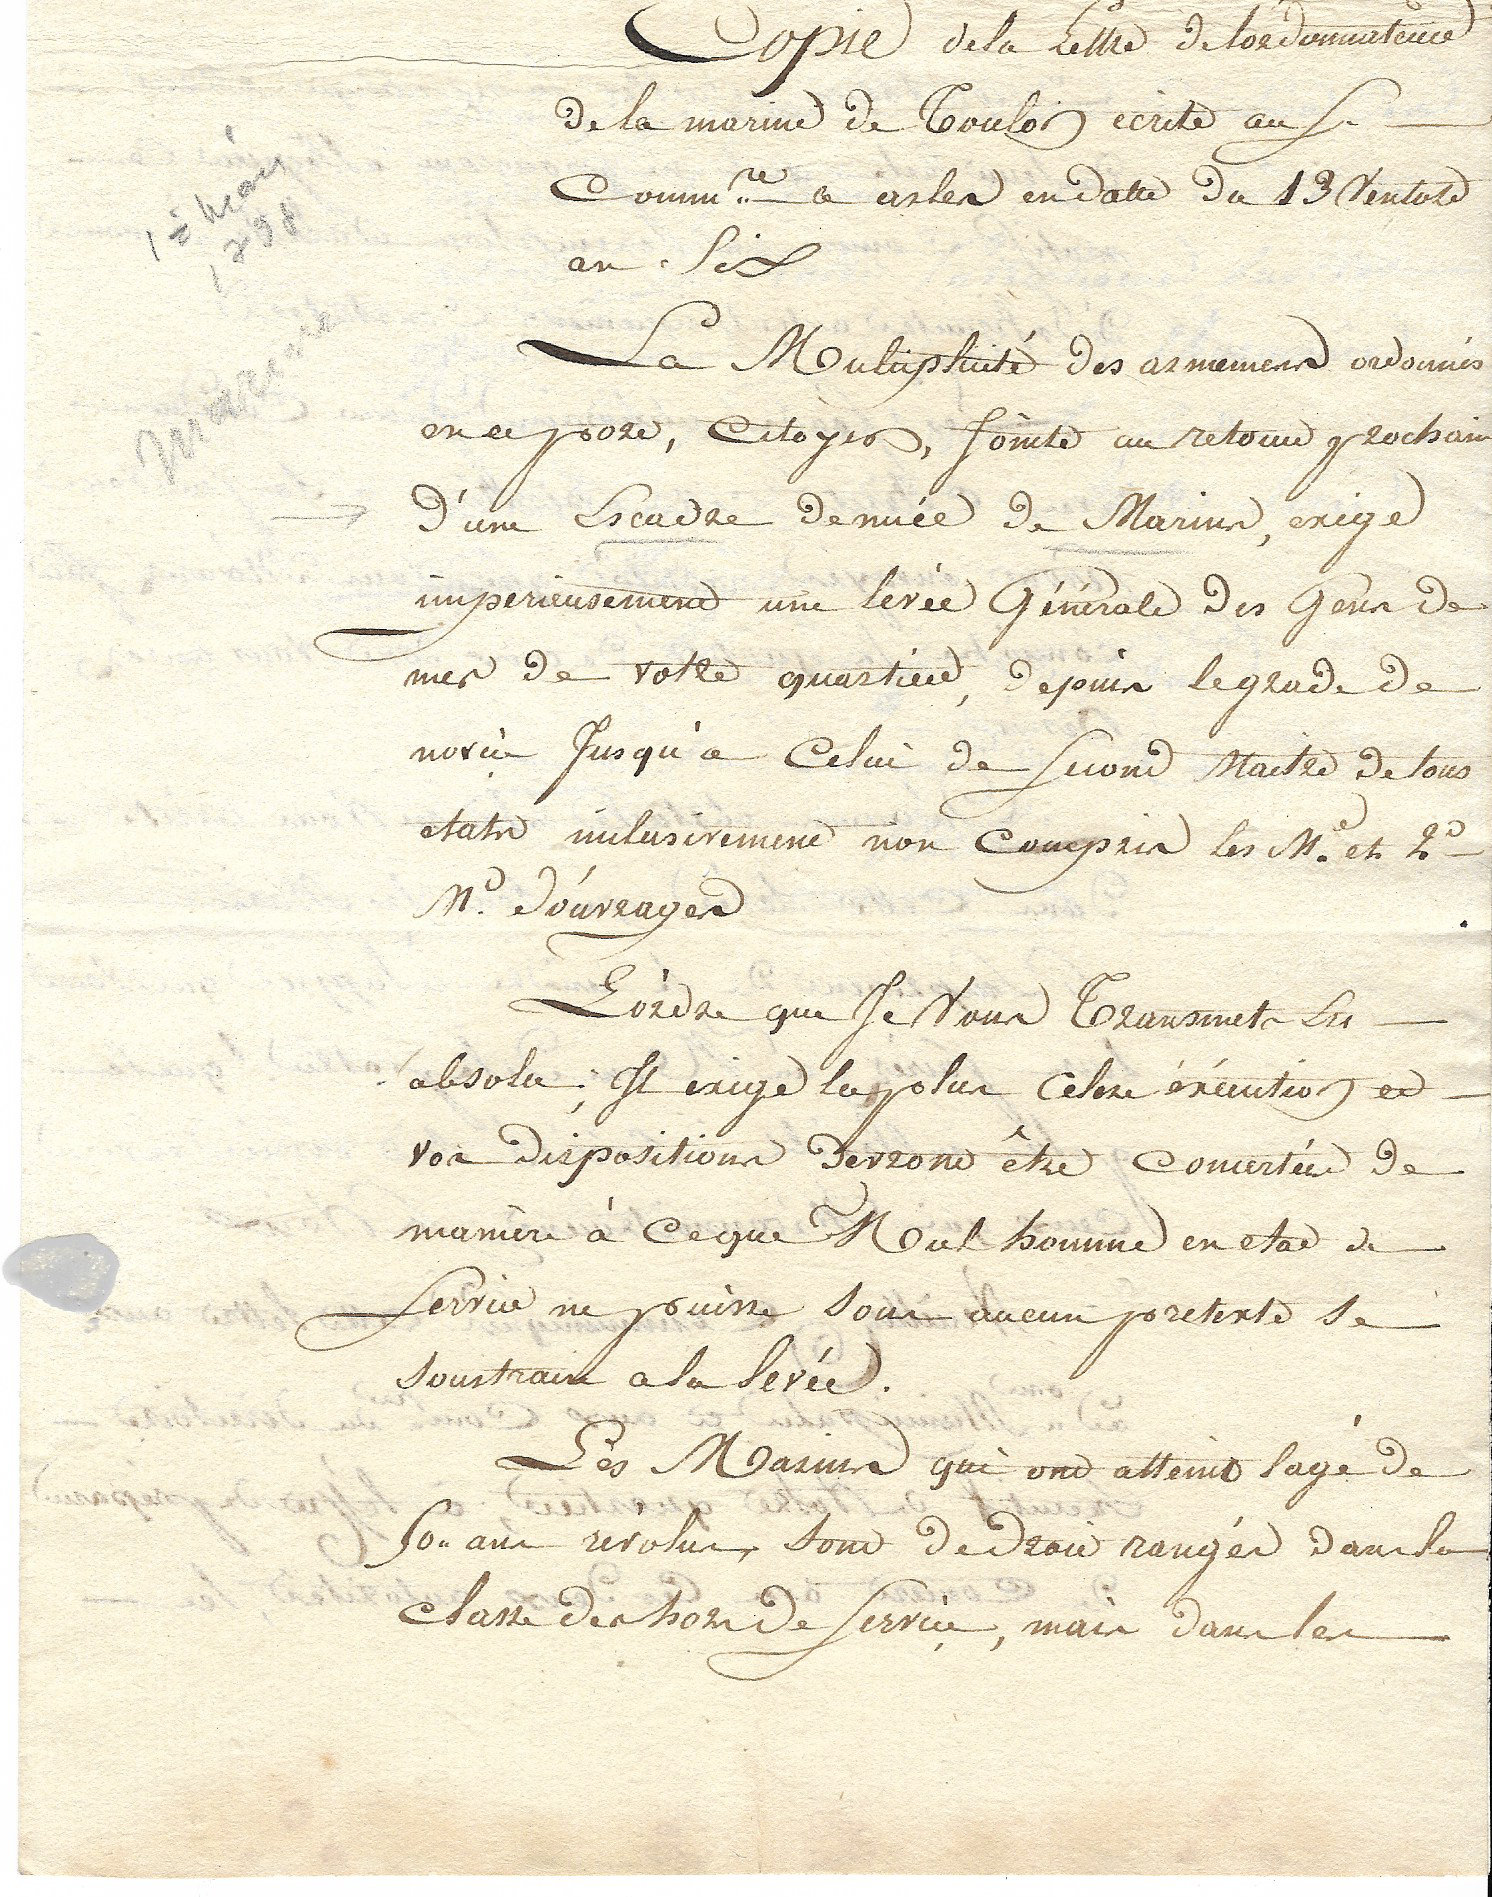 Copie de la Lettre de lordonnateur
de la marine de Toulon ecrite au S.
Comm.re a arles en datte du 13 Ventose
an Six
1798
marine
La Multiplicité des armemens ordonnés
en ce port, Citoyen, Jointe au retour prochain
D'une Escadre denuée de Marins, exige
imperieusement une levée Générale des Gens de
mer de votre quartier, depuis le grade de
novice Jusqu'a Celui de Second Maitre de tous
etats inclusivement non Compris les M.e et 2.d
M.e d'óuvrages
L'órdre que Je Vous Transmets Est
absolu; Il exige la plus Celere éxécution et
vos dispositions devront être Concertées de
manière à Ce que Nul homme en etat de
Service ne puisse sous aucun pretexte se
soustraire a la levée.
Les Marins qui ont atteint lagé de
50 ans révolus, sont de droit rangés dans la
classe des hors de Service, mais dans les